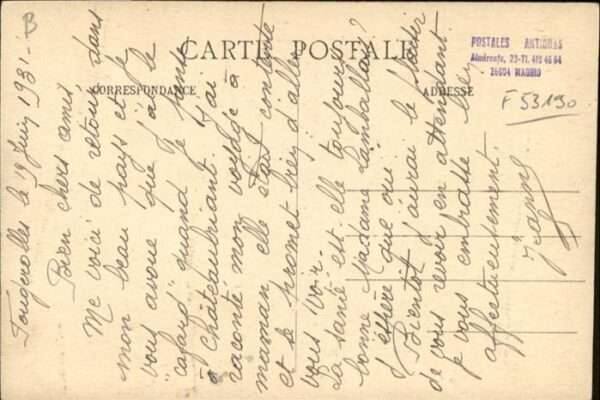 CARTE POSTALE
CORRESPONDANCE
ADRESSE
POSTALES ANTIGUAS
28004 MADRID
F 53190
B
Fougerolles le 19 Juin 1931.
Bien chers amis
Me voici de retour dans
mon beau pays et je
vous avoue que j'ai le
"cafard" quand je pense
à Châteaubriant. J'ai
raconté mon voyage à
maman elle était contente
et se promet bien d'aller
vous voir.
La santé est elle toujours
bonne Madame Lamballay?
J'espère que oui.
Bientôt j'aurai le plaisir
de vous revoir en attendant
je vous embrasse bien
affectueusement.
Jeanne